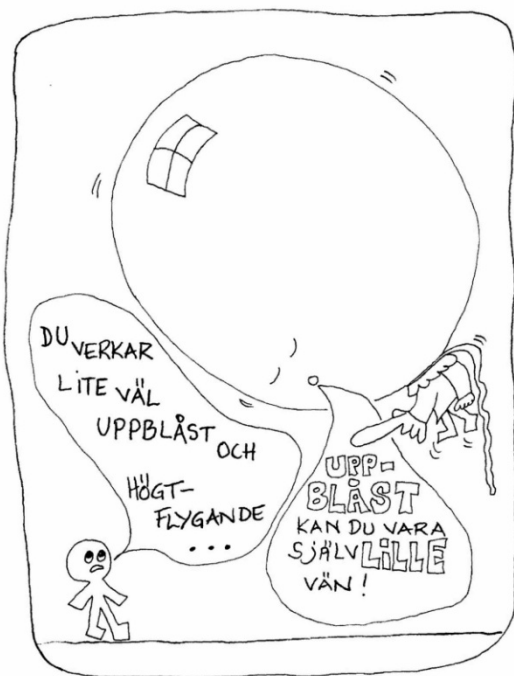 DU VERKAR
LITE VÄL
UPPBLÅST OCH
HÖGT-
FLYGANDE
...
UPP-
BLÅST
KAN DU VARA
SJÄLV LILLE
VÄN!